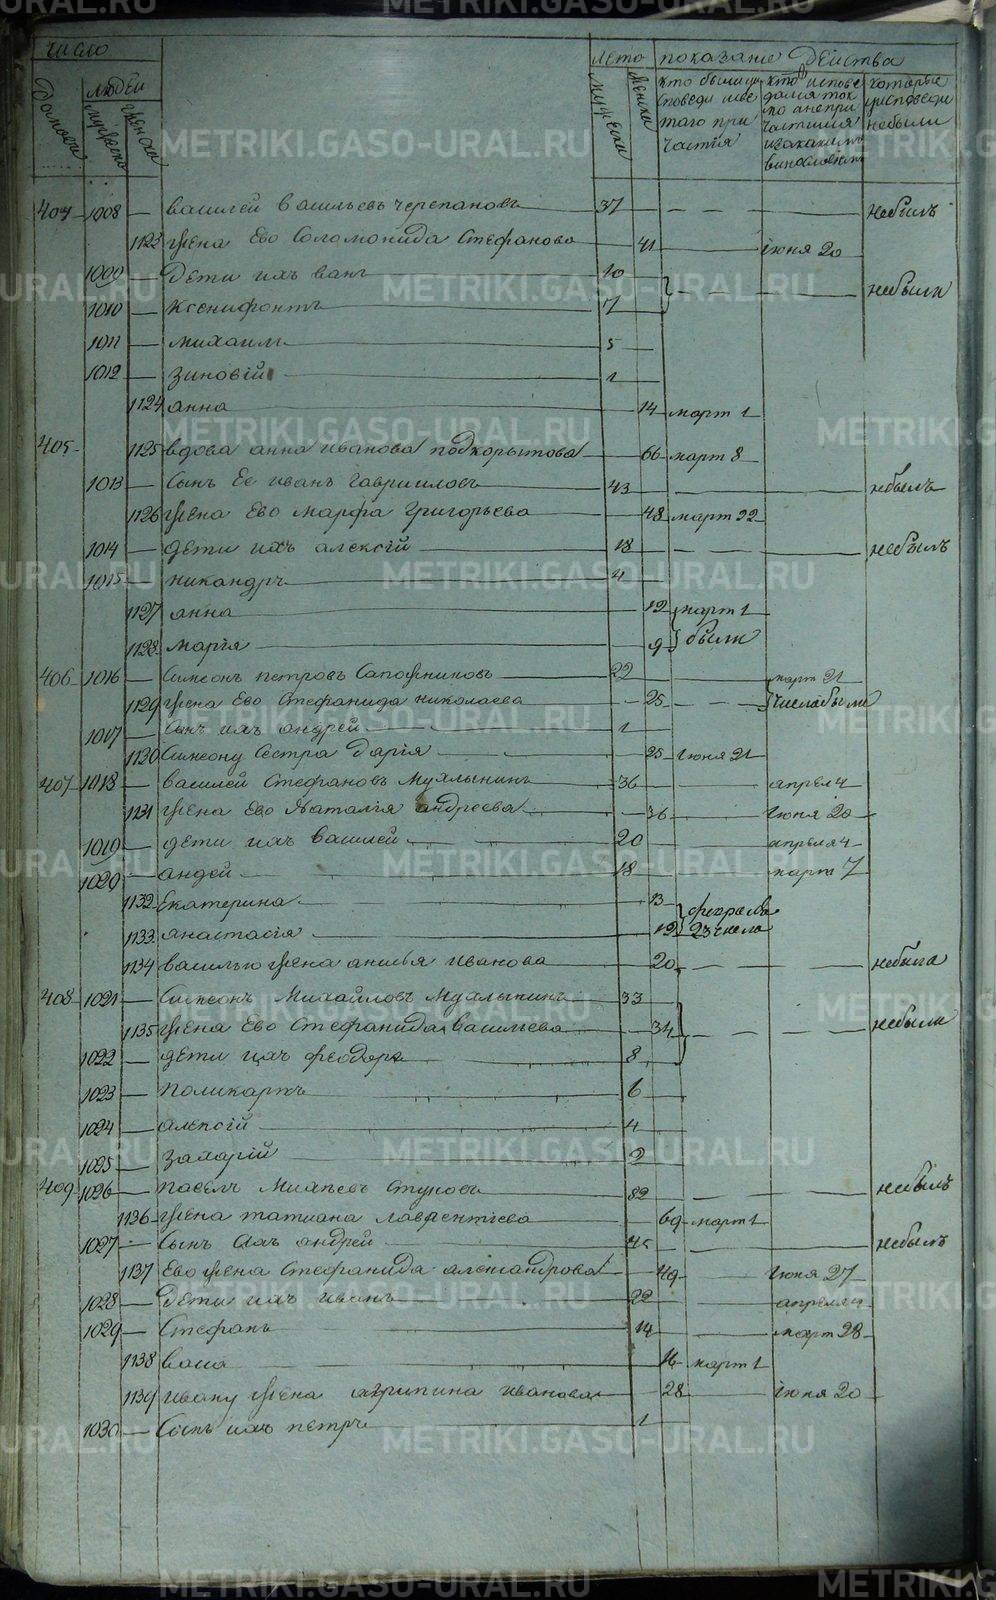 число лето показание действа
домовъ людей мужска женска мужска женска кто были у исповеди и светого причастия кто исповедался токмо а не причастился и за какимъ винословиемъ которые у исповеди небыли
404 1008 — василей васильевъ черепановъ 37 — — — небылъ
1123 жена Ево Соломонида Стефанова 41 — июня 20
1009 — дети ихъ иванъ 10 — — — небыли
1010 — Ксенифонтъ 7
1011 — михаилъ 5
1012 — зиновiй 1
1124 анна 14 март 1
405 1125 вдова анна иванова подкорытова 66 март 8
1013 — Сынъ Ее иванъ гавриловъ 43 — небылъ
1126 жена Ево марфа григорьева 48 март 22
1014 — дети ихъ алексiй 18 — — — небылъ
1015 — никандръ 4
1127 анна 12 март 1
1128 марiя 9 были
406 1016 — Симеонъ петровъ Сапожниковъ 22 март 21
1129 жена Ево Стефанида николаева 25 — — — числа были
1017 — Сынъ ихъ андрей 1
1130 Симеону Сестра дарiя 25 июня 21
407 1018 — василей Стефановъ Мухлынинъ 36 — апрел 4
1131 жена Ево Наталiя андреева 36 — июня 20
1019 — дети ихъ василей 20 — апреля 4
1020 — андей 18 — март 7
1132 Екатерина 13 февраля
1133 анастасiя 12 23 числа
1134 василью жена анисья иванова 20 — — — небыла
408 1021 — Симеонъ Михайловъ Мухлынинъ 33
1135 жена Ево Стефанида васильева 34 — — — небыли
1022 — дети ихъ феодоръ 8
1023 — поликарпъ 6
1024 — алексiй 4
1025 — захарiй 2
409 1026 — павелъ Михеевъ Ступовъ 82 — — — небылъ
1136 жена татиана лаврентiева 69 март 1
1027 — Сынъ ихъ андрей 45 — небылъ
1137 Ево жена Стефанида александрова 49 — июня 27
1028 — дети ихъ иванъ 22 — апреля 4
1029 — Стефанъ 14 — март 28
1138 васа 16 март 1
1139 ивану жена агрипина иванова 28 — июня 20
1030 — Сынъ ихъ петръ 1
METRIKI.GASO-URAL.RU